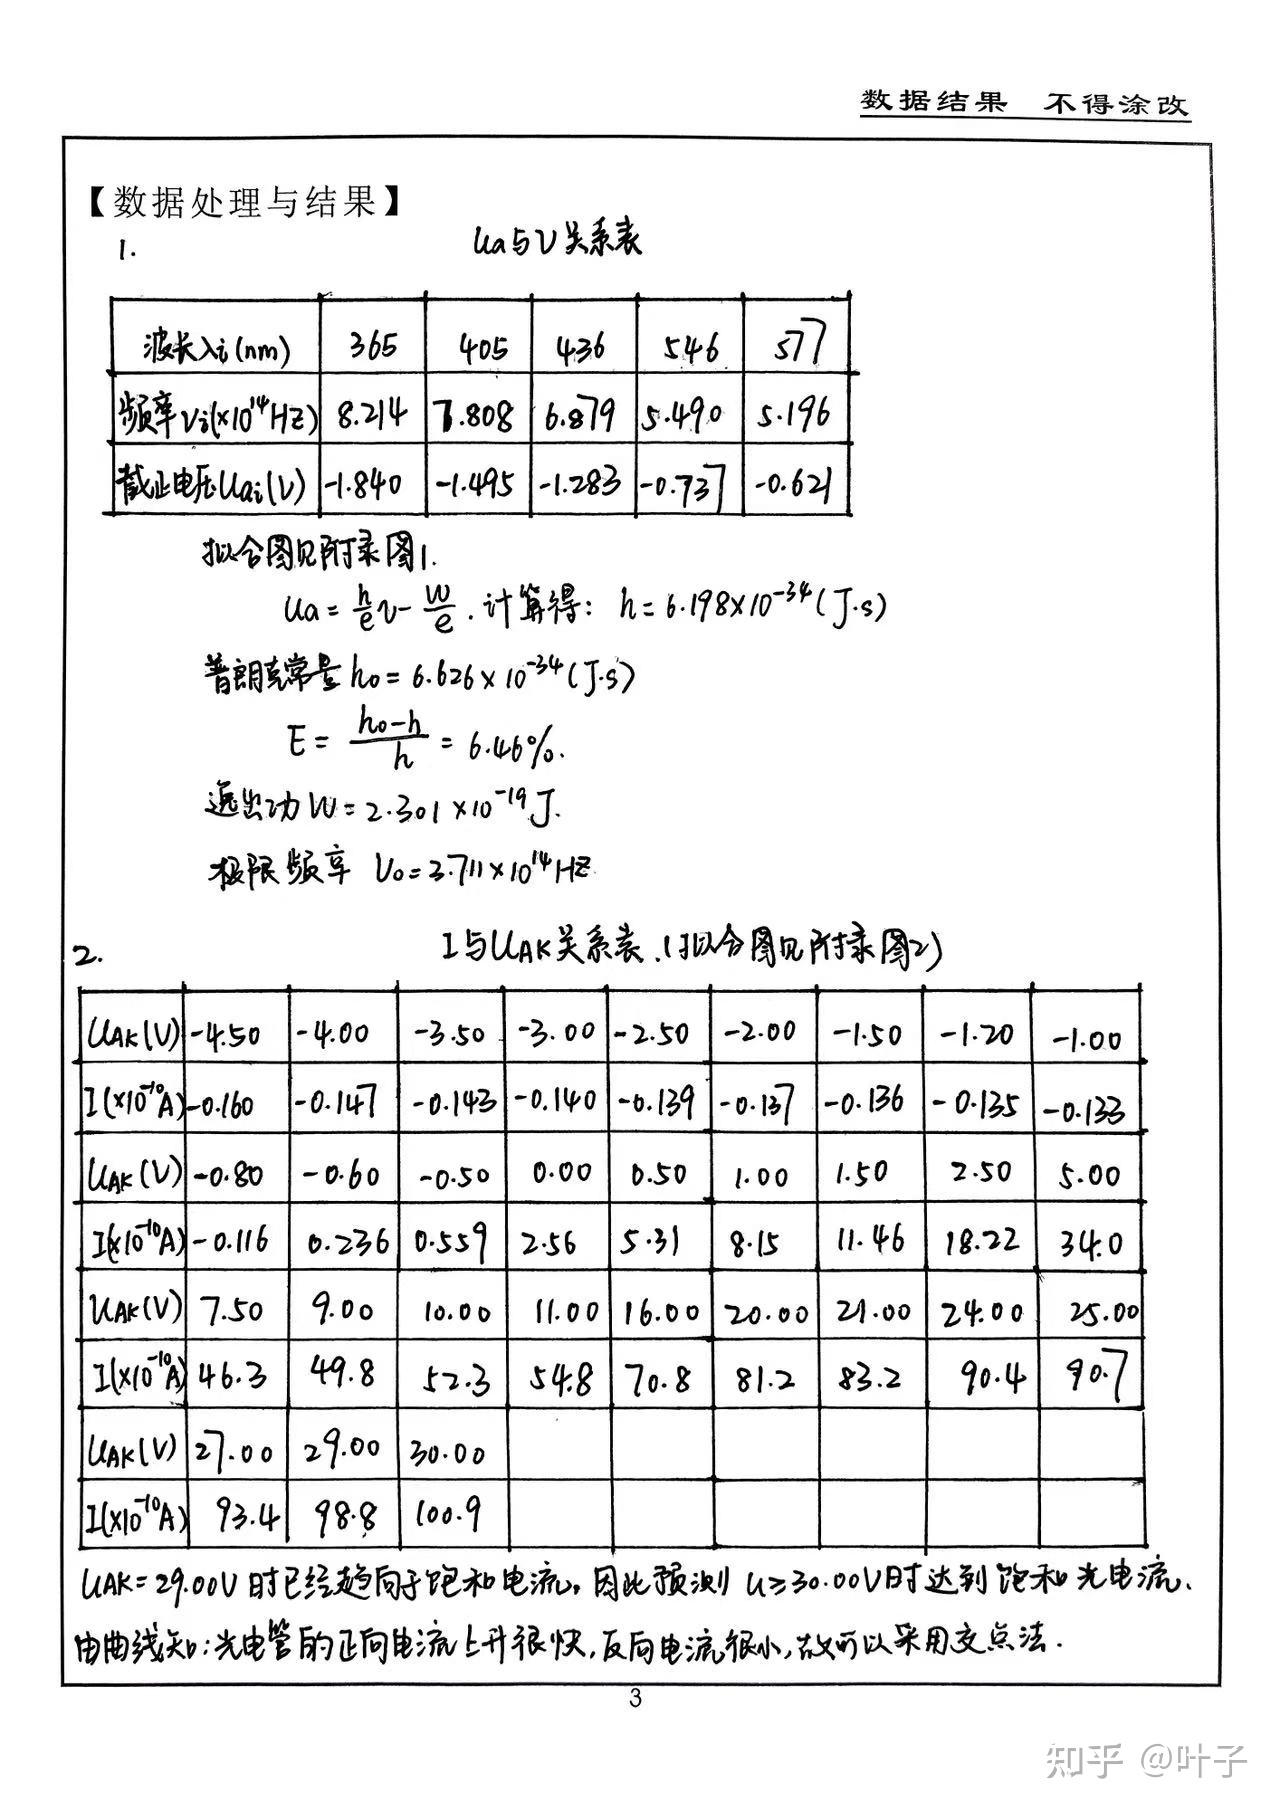 数据结果 不得涂改
【数据处理与结果】
1. Ua与ν关系表
波长λi(nm) 365 405 436 546 577
频率νi(×10¹⁴Hz) 8.214 7.808 6.879 5.490 5.196
截止电压Uai(V) -1.840 -1.495 -1.283 -0.737 -0.621
拟合图见附录图1.
Ua=h/e ν-W/e.计算得:h=6.198×10⁻³⁴(J·s)
普朗克常量h₀=6.626×10⁻³⁴(J·s)
E=(h₀-h)/h=6.46%.
逸出功W=2.301×10⁻¹⁹J.
极限频率 ν₀=3.711×10¹⁴HZ
2. I与UAK关系表.(拟合图见附录图2)
UAK(V) -4.50 -4.00 -3.50 -3.00 -2.50 -2.00 -1.50 -1.20 -1.00
I(×10⁻¹⁰A) -0.160 -0.147 -0.143 -0.140 -0.139 -0.137 -0.136 -0.135 -0.133
UAK(V) -0.80 -0.60 -0.50 0.00 0.50 1.00 1.50 2.50 5.00
I(×10⁻¹⁰A) -0.116 0.236 0.559 2.56 5.31 8.15 11.46 18.22 34.0
UAK(V) 7.50 9.00 10.00 11.00 16.00 20.00 21.00 24.00 25.00
I(×10⁻¹⁰A) 46.3 49.8 52.3 54.8 70.8 81.2 83.2 90.4 90.7
UAK(V) 27.00 29.00 30.00
I(×10⁻¹⁰A) 93.4 98.8 100.9
UAK=29.00V时已经趋向于饱和电流,因此预测U≥30.00V时达到饱和光电流.
由曲线知:光电管的正向电流上升很快,反向电流很小,故可以采用交点法.
3
知乎 @叶子